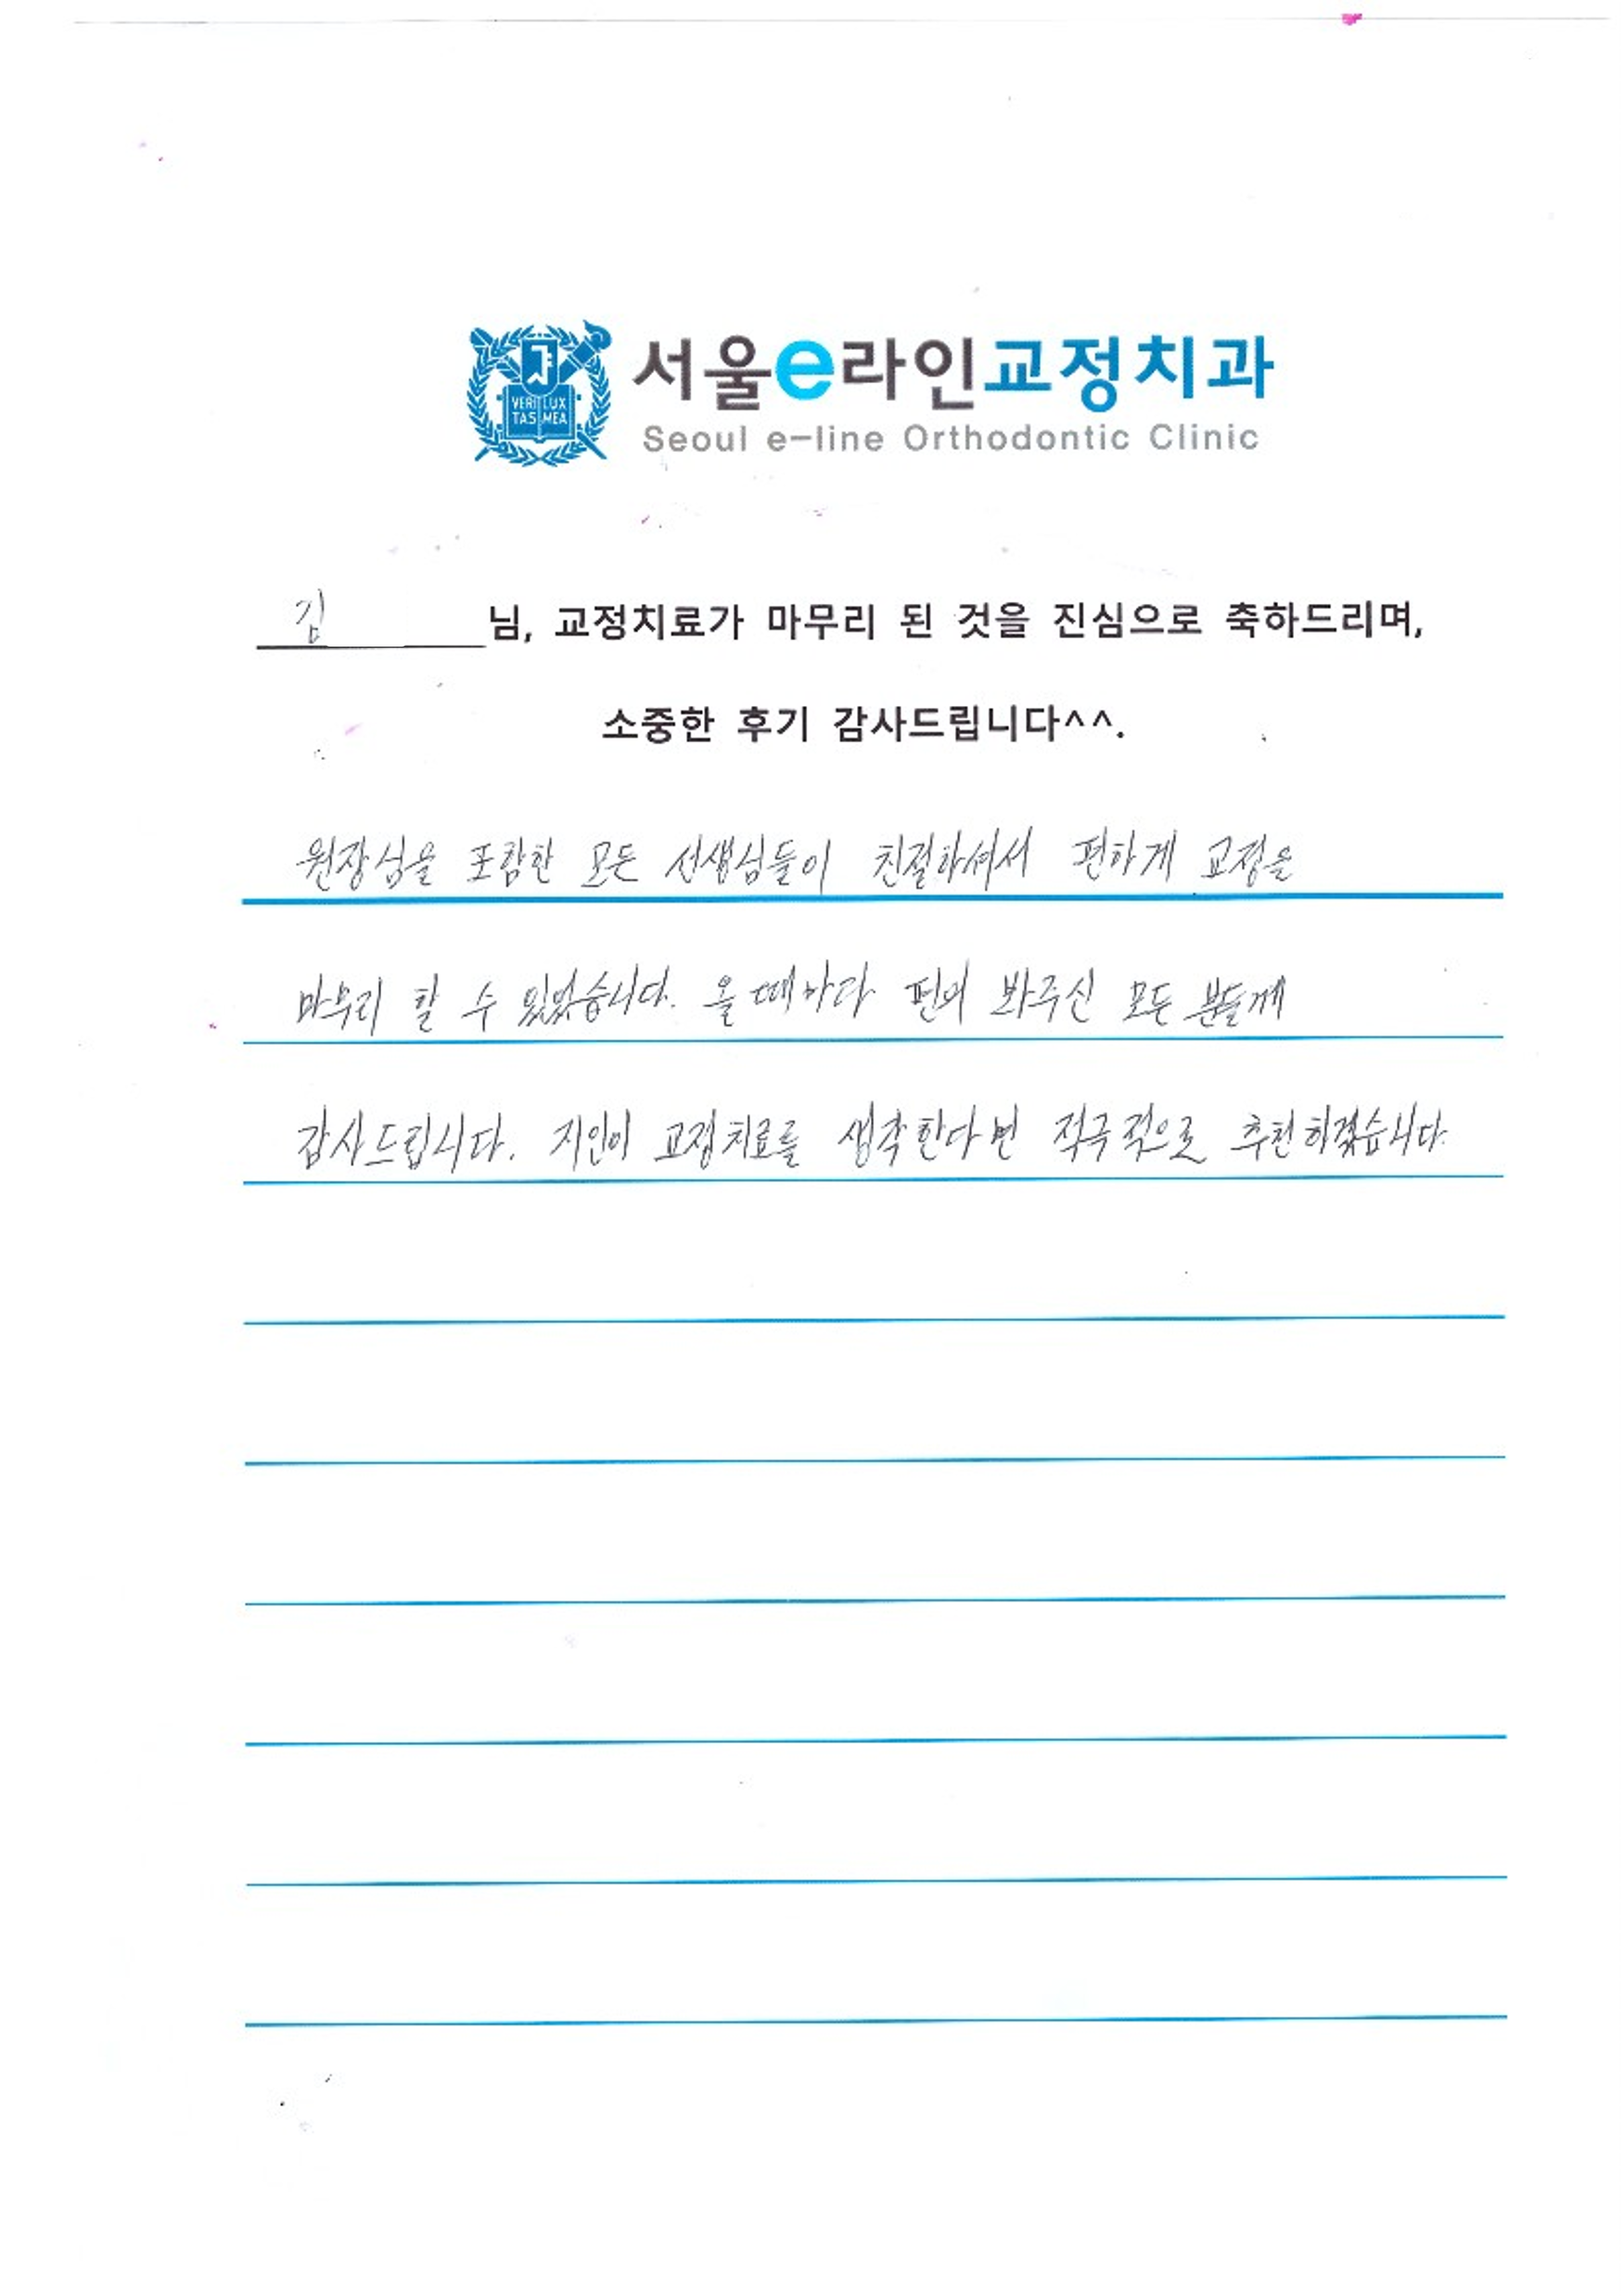 서울e라인교정치과
VERI LUX
TAS MEA
Seoul e-line Orthodontic Clinic
김 님, 교정치료가 마무리 된 것을 진심으로 축하드리며,
소중한 후기 감사드립니다^^.
원장님을 포함한 모든 선생님들이 친절하셔서 편하게 교정을
마무리 할 수 있었습니다. 올 때마다 편의 봐주신 모든 분들께
감사드립니다. 지인이 교정치료를 생각한다면 적극적으로 추천하겠습니다.